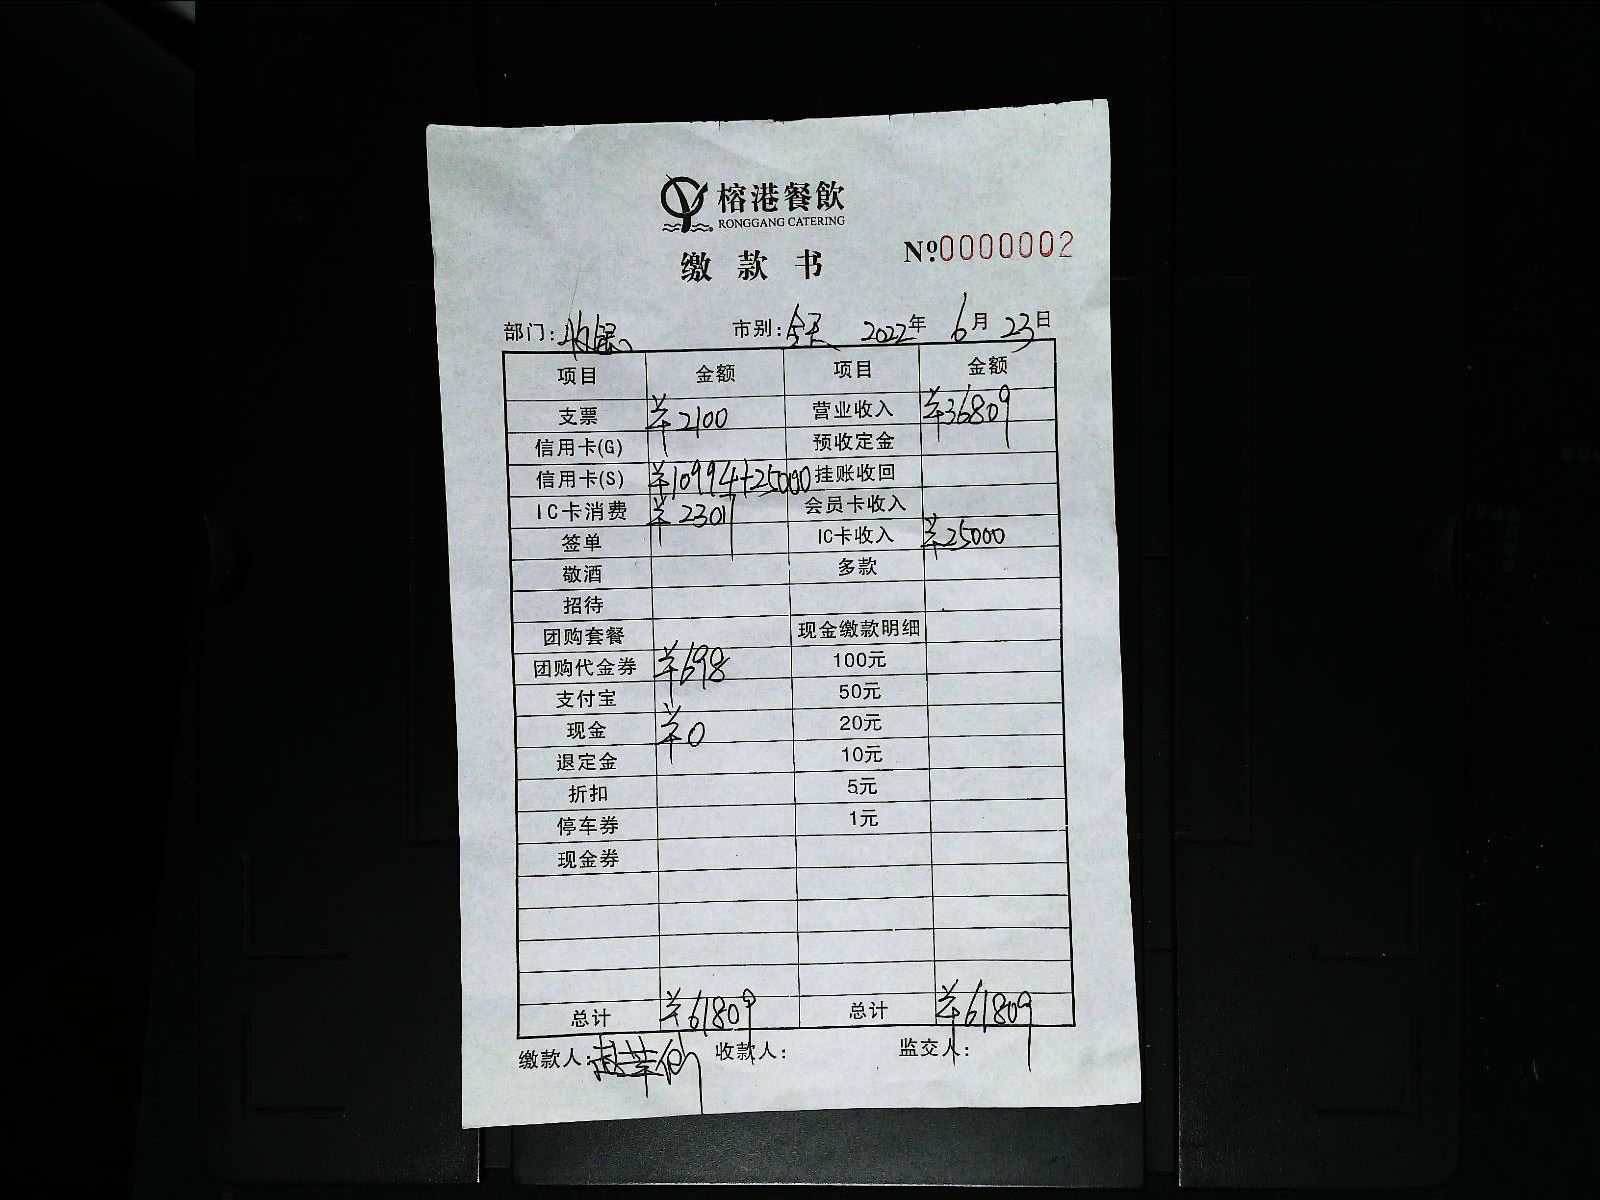 榕港餐飲
RONGGANG CATERING
缴款书
No.0000002
部门: 收银 市别: 全天 2022年 6月 23日
项目 金额 项目 金额
支票 ¥2100 营业收入 ¥36809
信用卡(G) 预收定金
信用卡(S) ¥10994+25000 挂账收回
IC卡消费 ¥23017 会员卡收入
签单 IC卡收入 ¥25000
敬酒 多款
招待
团购套餐 现金缴款明细
团购代金券 ¥698 100元
支付宝 50元
现金 ¥0 20元
退定金 10元
折扣 5元
停车券 1元
现金券
总计 ¥61809 总计 ¥61809
缴款人: 收款人: 监交人: